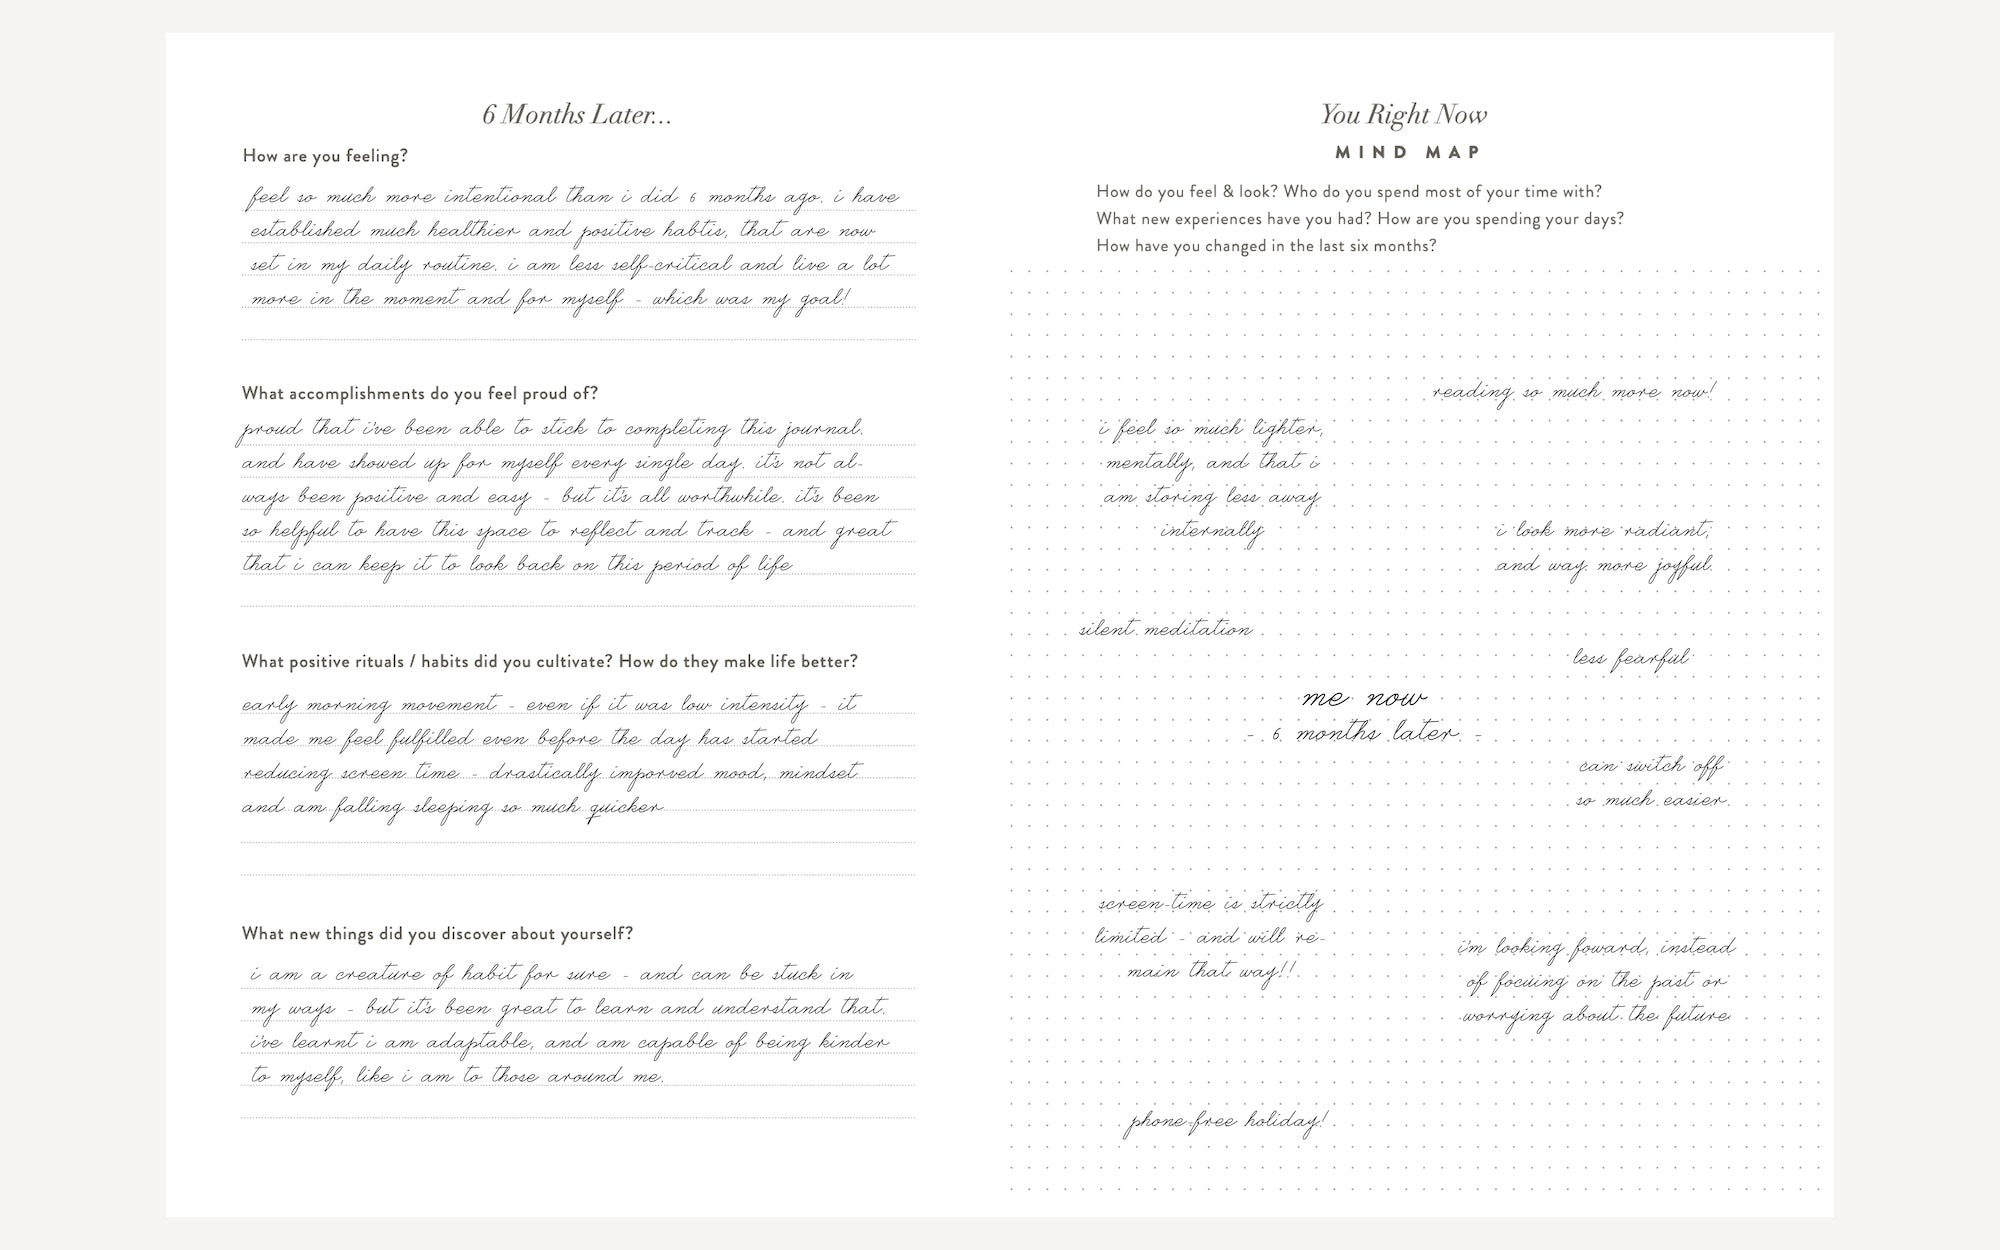 6 Months Later...
How are you feeling?
feel so much more intentional than i did 6 months ago. i have
established much healthier and positive habtis, that are now
set in my daily routine. i am less self-critical and live a lot
more in the moment and for myself - which was my goal!
What accomplishments do you feel proud of?
proud that i've been able to stick to completing this journal.
and have showed up for myself every single day. it's not al-
ways been positive and easy - but it's all worthwhile. it's been
so helpful to have this space to reflect and track - and great
that i can keep it to look back on this period of life
What positive rituals / habits did you cultivate? How do they make life better?
early morning movement - even if it was low intensity - it
made me feel fulfilled even before the day has started
reducing screen time - drastically imporved mood, mindset
and am falling sleeping so much quicker
What new things did you discover about yourself?
i am a creature of habit for sure - and can be stuck in
my ways - but it's been great to learn and understand that.
i've learnt i am adaptable, and am capable of being kinder
to myself, like i am to those around me.
You Right Now
MIND MAP
How do you feel & look? Who do you spend most of your time with?
What new experiences have you had? How are you spending your days?
How have you changed in the last six months?
reading so much more now!
i feel so much lighter,
mentally, and that i
am storing less away
internally
i look more radiant,
and way more joyful.
silent meditation
less fearful
me now
- 6 months later -
can switch off
so much easier.
screen-time is strictly
limited - and will re-
main that way!!
i'm looking foward, instead
of focuing on the past or
worrying about the future
phone-free holiday!